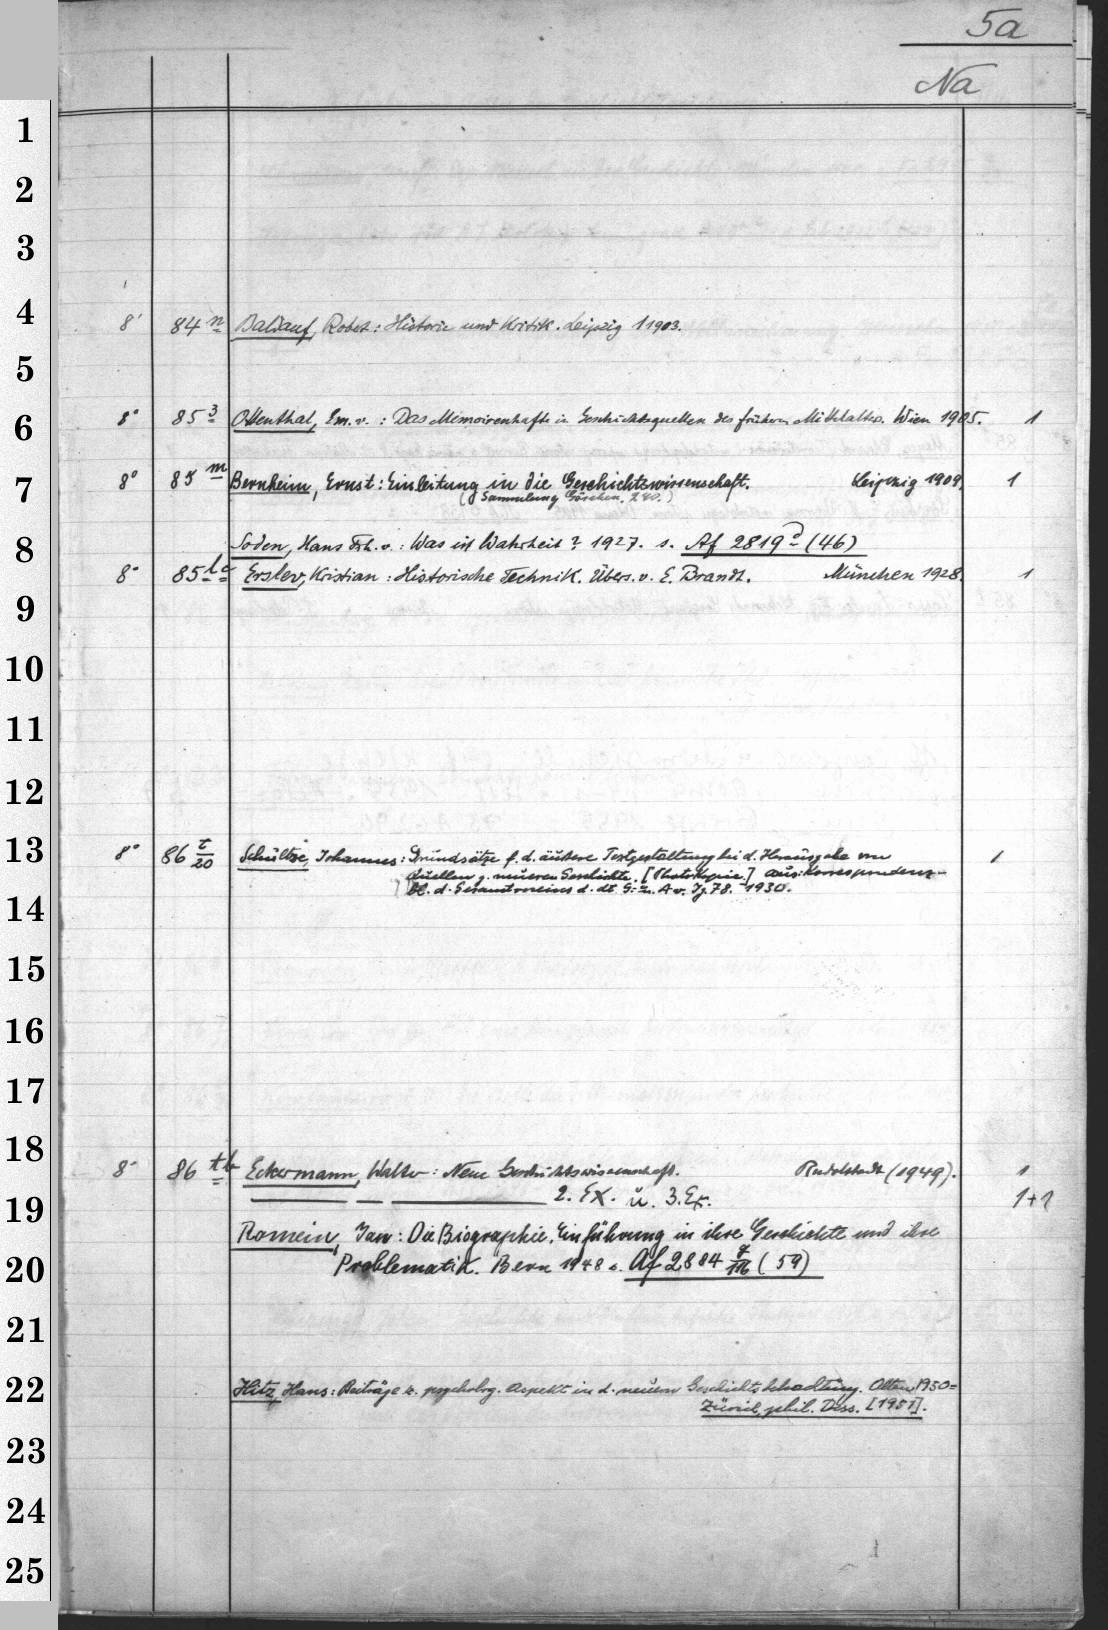 5a
Na
1
2
3
4 8° 84 n Baldauf, Robert: Historie und Kritik. Leipzig 1 1903.
5
6 8° 85 3 Ottenthal, Em. v.: Das Memoirenhafte in Geschichtsquellen des frühern Mittelalters. Wien 1905. 1
7 8° 85 m Bernheim, Ernst: Einleitung in die Geschichtswissenschaft. Leipzig 1909. 1
(Sammlung Göschen. 270.)
8 Soden, Hans Frh. v.: Was ist Wahrheit? 1927. s. Af 2819 (46)
8° 85 Erslev, Kristian: Historische Technik. Übers. v. E. Brandt. München 1928. 1
9
10
11
12
13 8° 86 t/20 Schultze, Johannes: Grundsätze f. d. äußere Textgestaltung bei d. Herausgabe von 1
Quellen z. neueren Geschichte. [Photokopie.] aus: Korrespondenz-
bl. d. Gesamtvereins d. dt. G.- u. A.v. Jg. 78. 1930.
14
15
16
17
18 8° 86 tb Eckermann, Walter: Neue Geschichtswissenschaft. Rudolstadt (1949). 1
19 2. Ex. u. 3. Ex. 1+1
Romein, Jan: Die Biographie. Einführung in ihre Geschichte und ihre
20 Problematik. Bern 1948 s. Af 2884 (59)
21
22 Hitz, Hans: Beiträge z. psycholog. Aspekt in d. neuern Geschichtsbetrachtung. Olten 1950=
Zürich, phil. Diss. [1951].
23
24
25